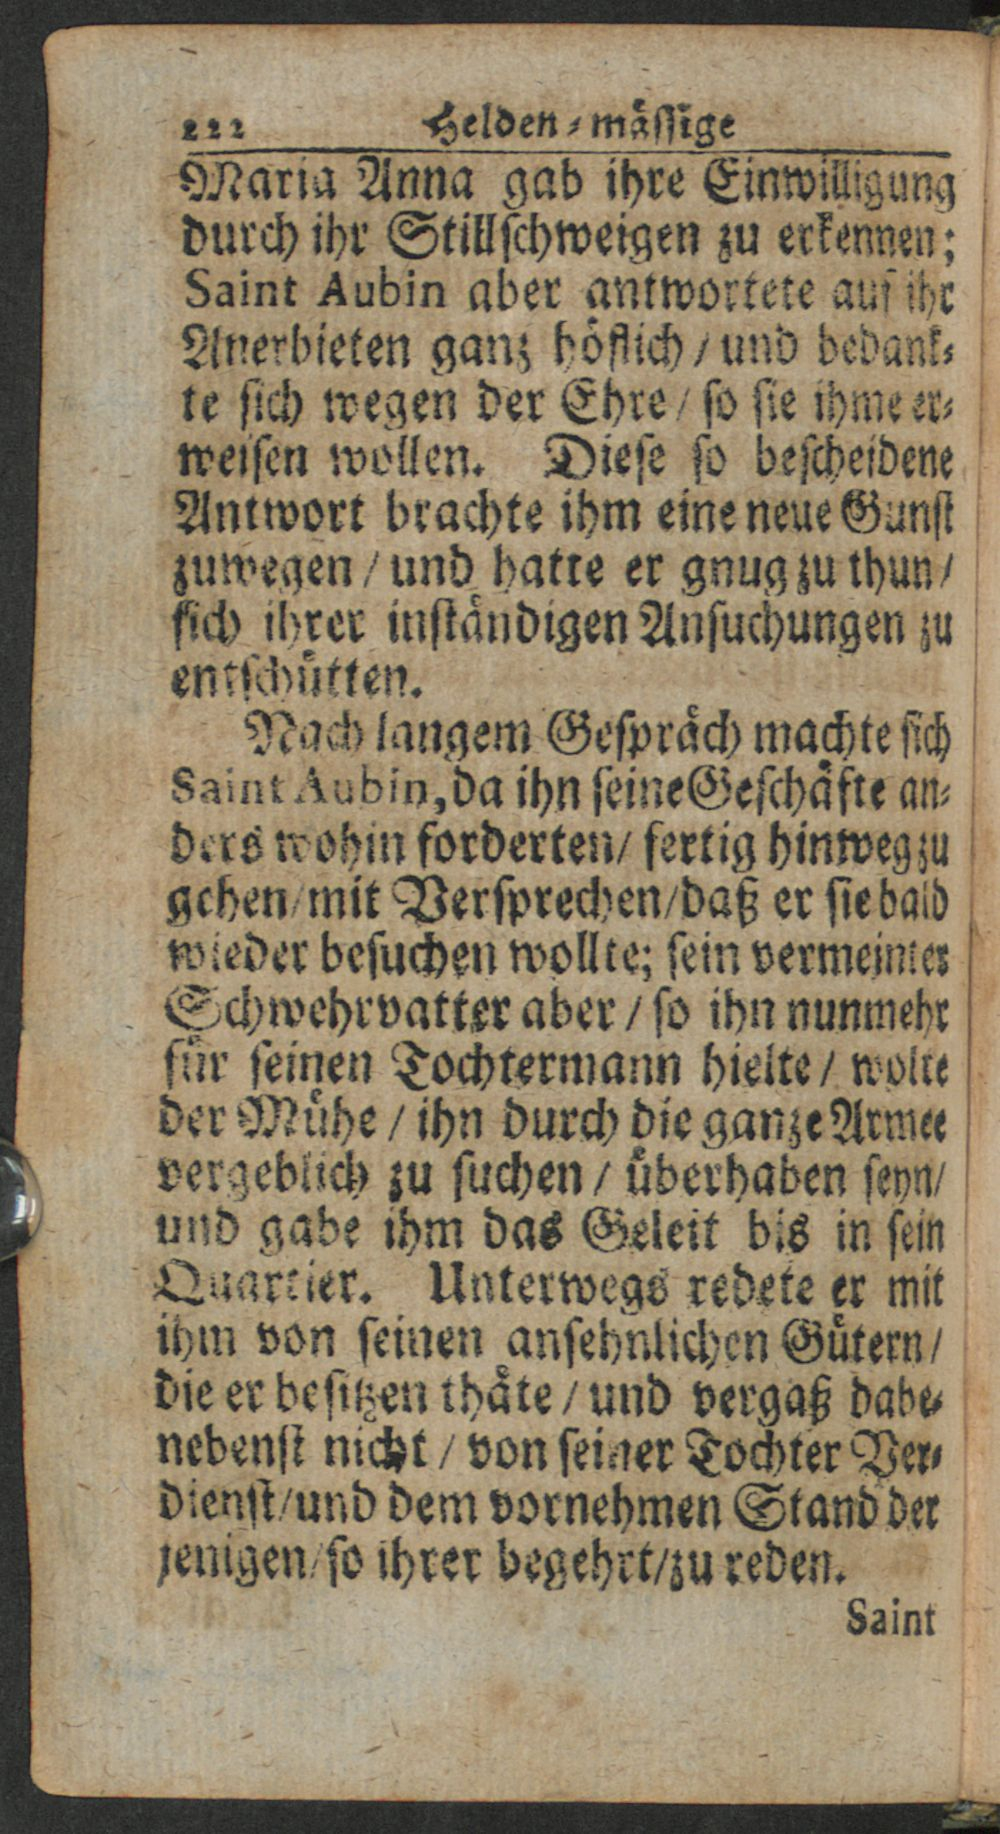 222 Helden-mässige
Maria Anna gab ihre Einwilligung
durch ihr Stillschweigen zu erkennen;
Saint Aubin aber antwortete auf ihr
Anerbieten ganz höflich / und bedank-
te sich wegen der Ehre / so sie ihme er-
weisen wollen. Diese so bescheidene
Antwort brachte ihm eine neue Gunst
zuwegen / und hatte er gnug zu thun /
sich ihrer inständigen Ansuchungen zu
entschütten.
Nach langem Gespräch machte sich
Saint Aubin, da ihn seine Geschäfte an-
ders wohin forderten / fertig hinweg zu
gehen / mit Versprechen / daß er sie bald
wieder besuchen wollte; sein vermeinter
Schwehrvatter aber / so ihn nunmehr
für seinen Tochtermann hielte / wolte
der Mühe / ihn durch die ganze Armee
vergeblich zu suchen / überhaben seyn /
und gabe ihm das Geleit bis in sein
Quartier. Unterwegs redete er mit
ihm von seinen ansehnlichen Gütern /
die er besitzen thäte / und vergaß dabe-
nebenst nicht / von seiner Tochter Ver-
dienst / und dem vornehmen Stand der
jenigen / so ihrer begehrt / zu reden.
Saint